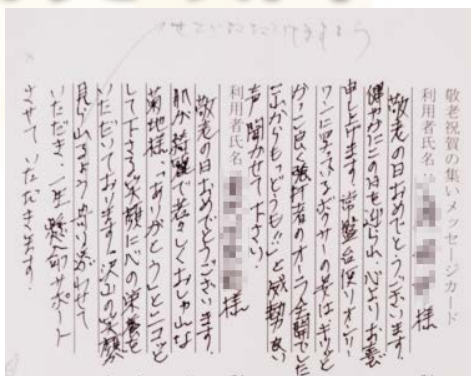 敬老祝賀の集いメッセージカード
利用者氏名 様
敬老の日おめでとうございます。
健やかにこの日を迎られ、心よりお喜び
申し上げます。常盤台便りオンリー
ワンに写っているボクサーの姿はキリッと
かっこ良く強打者のオーラ全開でした
これからも「どうも!!」と威勢良い
声聞かせて下さい。
利用者氏名 様
敬老の日おめでとうございます。
肌が綺麗で若々しくおしゃれな
菊地様。「ありがとう」とニコッと
して下さる笑顔に心の栄養を
いただいております。沢山の笑顔
見られるよう寄り添わせて
いただき、一生懸命サポート
させていただきます。